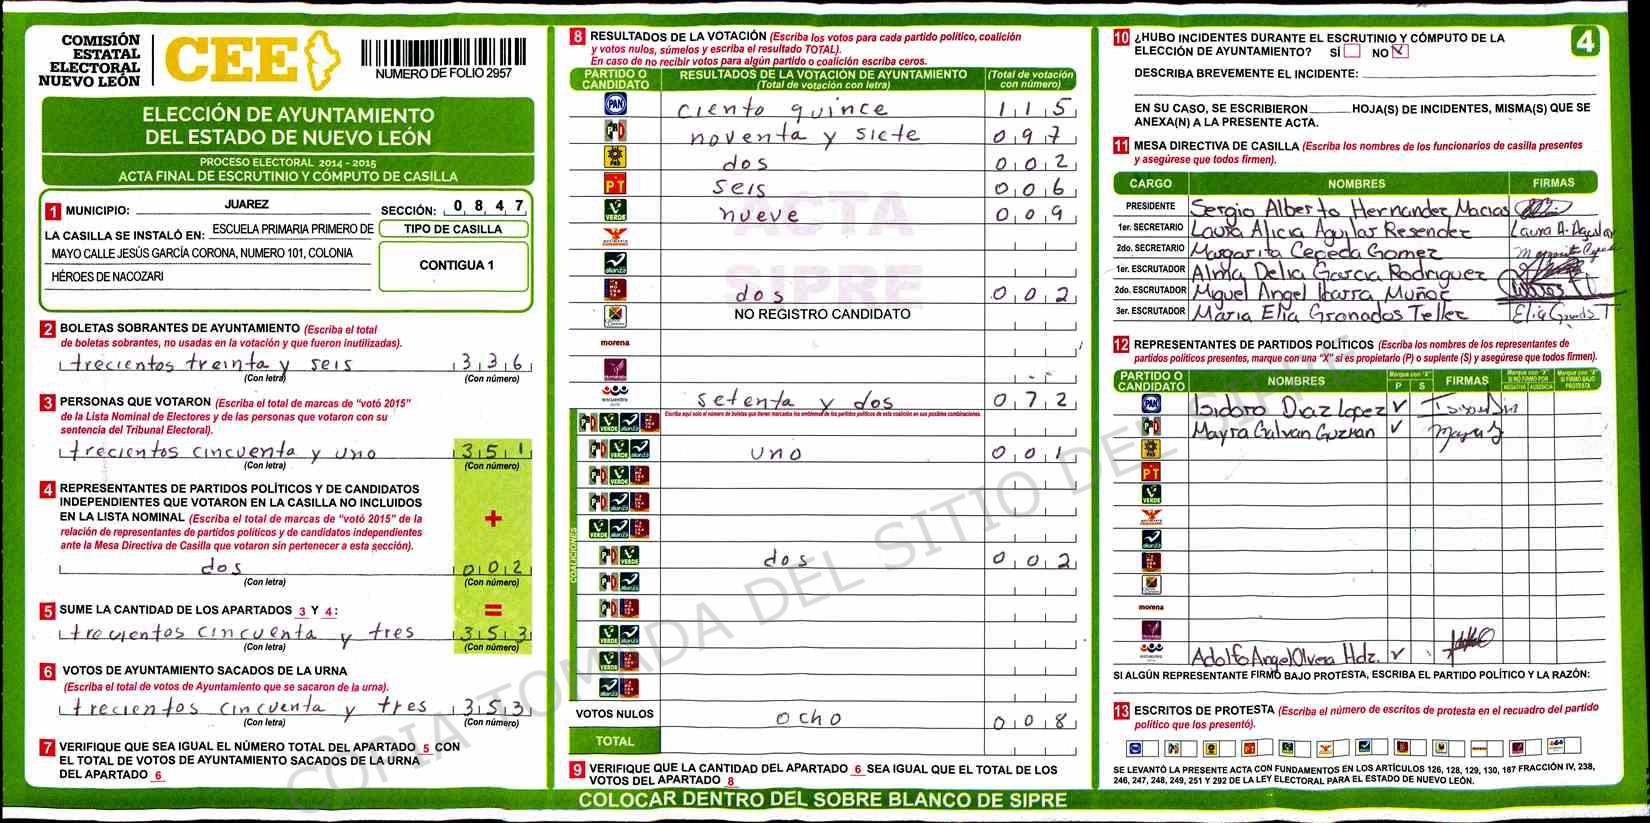 COMISIÓN
ESTATAL
ELECTORAL
NUEVO LEÓN
CEE
NUMERO DE FOLIO 2957
ELECCIÓN DE AYUNTAMIENTO
DEL ESTADO DE NUEVO LEÓN
PROCESO ELECTORAL 2014 - 2015
ACTA FINAL DE ESCRUTINIO Y CÓMPUTO DE CASILLA
1 MUNICIPIO: JUAREZ SECCIÓN: 0 8 4 7
LA CASILLA SE INSTALÓ EN: ESCUELA PRIMARIA PRIMERO DE
MAYO CALLE JESÚS GARCÍA CORONA, NUMERO 101, COLONIA
HÉROES DE NACOZARI
TIPO DE CASILLA
CONTIGUA 1
2 BOLETAS SOBRANTES DE AYUNTAMIENTO (Escriba el total
de boletas sobrantes, no usadas en la votación y que fueron inutilizadas).
trecientos treinta y seis 3 3 6
(Con letra) (Con número)
3 PERSONAS QUE VOTARON (Escriba el total de marcas de "votó 2015"
de la Lista Nominal de Electores y de las personas que votaron con su
sentencia del Tribunal Electoral).
trecientos cincuenta y uno 3 5 1
(Con letra) (Con número)
4 REPRESENTANTES DE PARTIDOS POLÍTICOS Y DE CANDIDATOS
INDEPENDIENTES QUE VOTARON EN LA CASILLA NO INCLUIDOS
EN LA LISTA NOMINAL (Escriba el total de marcas de "votó 2015" de la
relación de representantes de partidos políticos y de candidatos independientes
ante la Mesa Directiva de Casilla que votaron sin pertenecer a esta sección).
+
dos 0 0 2
(Con letra) (Con número)
5 SUME LA CANTIDAD DE LOS APARTADOS 3 Y 4: =
trecientos cincuenta y tres 3 5 3
(Con letra) (Con número)
6 VOTOS DE AYUNTAMIENTO SACADOS DE LA URNA
(Escriba el total de votos de Ayuntamiento que se sacaron de la urna).
trecientos cincuenta y tres 3 5 3
(Con letra) (Con número)
7 VERIFIQUE QUE SEA IGUAL EL NÚMERO TOTAL DEL APARTADO 5 CON
EL TOTAL DE VOTOS DE AYUNTAMIENTO SACADOS DE LA URNA
DEL APARTADO 6
8 RESULTADOS DE LA VOTACIÓN (Escriba los votos para cada partido político, coalición
y votos nulos, súmelos y escriba el resultado TOTAL).
En caso de no recibir votos para algún partido o coalición escriba ceros.
PARTIDO O CANDIDATO RESULTADOS DE LA VOTACIÓN DE AYUNTAMIENTO (Total de votación con letra) (Total de votación con número)
PAN ciento quince 1 1 5
PRD noventa y siete 0 9 7
PRD dos 0 0 2
PT seis 0 0 6
VERDE nueve 0 0 9
alianza
dos 0 0 2
NO REGISTRO CANDIDATO
morena
encuentro setenta y dos 0 7 2
Escriba aquí solo el número de boletas que tienen marcados los emblemas de los partidos políticos de esta coalición en sus posibles combinaciones.
COALICIONES
uno 0 0 1
dos 0 0 2
VOTOS NULOS ocho 0 0 8
TOTAL
ACTA
SIPRE
9 VERIFIQUE QUE LA CANTIDAD DEL APARTADO 6 SEA IGUAL QUE EL TOTAL DE LOS
VOTOS DEL APARTADO 8
COLOCAR DENTRO DEL SOBRE BLANCO DE SIPRE
4
10 ¿HUBO INCIDENTES DURANTE EL ESCRUTINIO Y CÓMPUTO DE LA
ELECCIÓN DE AYUNTAMIENTO? SÍ NO
DESCRIBA BREVEMENTE EL INCIDENTE:
EN SU CASO, SE ESCRIBIERON HOJA(S) DE INCIDENTES, MISMA(S) QUE SE
ANEXA(N) A LA PRESENTE ACTA.
11 MESA DIRECTIVA DE CASILLA (Escriba los nombres de los funcionarios de casilla presentes
y asegúrese que todos firmen).
CARGO NOMBRES FIRMAS
PRESIDENTE Sergio Alberto Hernandez Macias
1er. SECRETARIO Laura Alicia Aguilar Resendez Laura A. Aguilar
2do. SECRETARIO Margarita Cepeda Gomez
1er. ESCRUTADOR Alma Delia Garcia Rodriguez
2do. ESCRUTADOR Miguel Angel Ibarra Muñoz
3er. ESCRUTADOR Maria Elia Granados Tellez
12 REPRESENTANTES DE PARTIDOS POLÍTICOS (Escriba los nombres de los representantes de
partidos políticos presentes, marque con una "X" si es propietario (P) o suplente (S) y asegúrese que todos firmen).
PARTIDO O CANDIDATO NOMBRES Marque con "X" P S FIRMAS Marque con "X" SI NO FIRMO POR NEGATIVA AUSENCIA Marque con "X" SI FIRMO BAJO PROTESTA
PAN Isidoro Diaz Lopez
Mayra Galvan Guzman
PRD
PT
VERDE
alianza
morena
Adolfo Angel Olvera Hdz.
SI ALGÚN REPRESENTANTE FIRMÓ BAJO PROTESTA, ESCRIBA EL PARTIDO POLÍTICO Y LA RAZÓN:
13 ESCRITOS DE PROTESTA (Escriba el número de escritos de protesta en el recuadro del partido
político que los presentó).
SE LEVANTÓ LA PRESENTE ACTA CON FUNDAMENTOS EN LOS ARTÍCULOS 126, 128, 129, 130, 187 FRACCIÓN IV, 238,
246, 247, 248, 249, 251 Y 292 DE LA LEY ELECTORAL PARA EL ESTADO DE NUEVO LEÓN.
COPIA TOMADA DEL SITIO DEL SIPRE